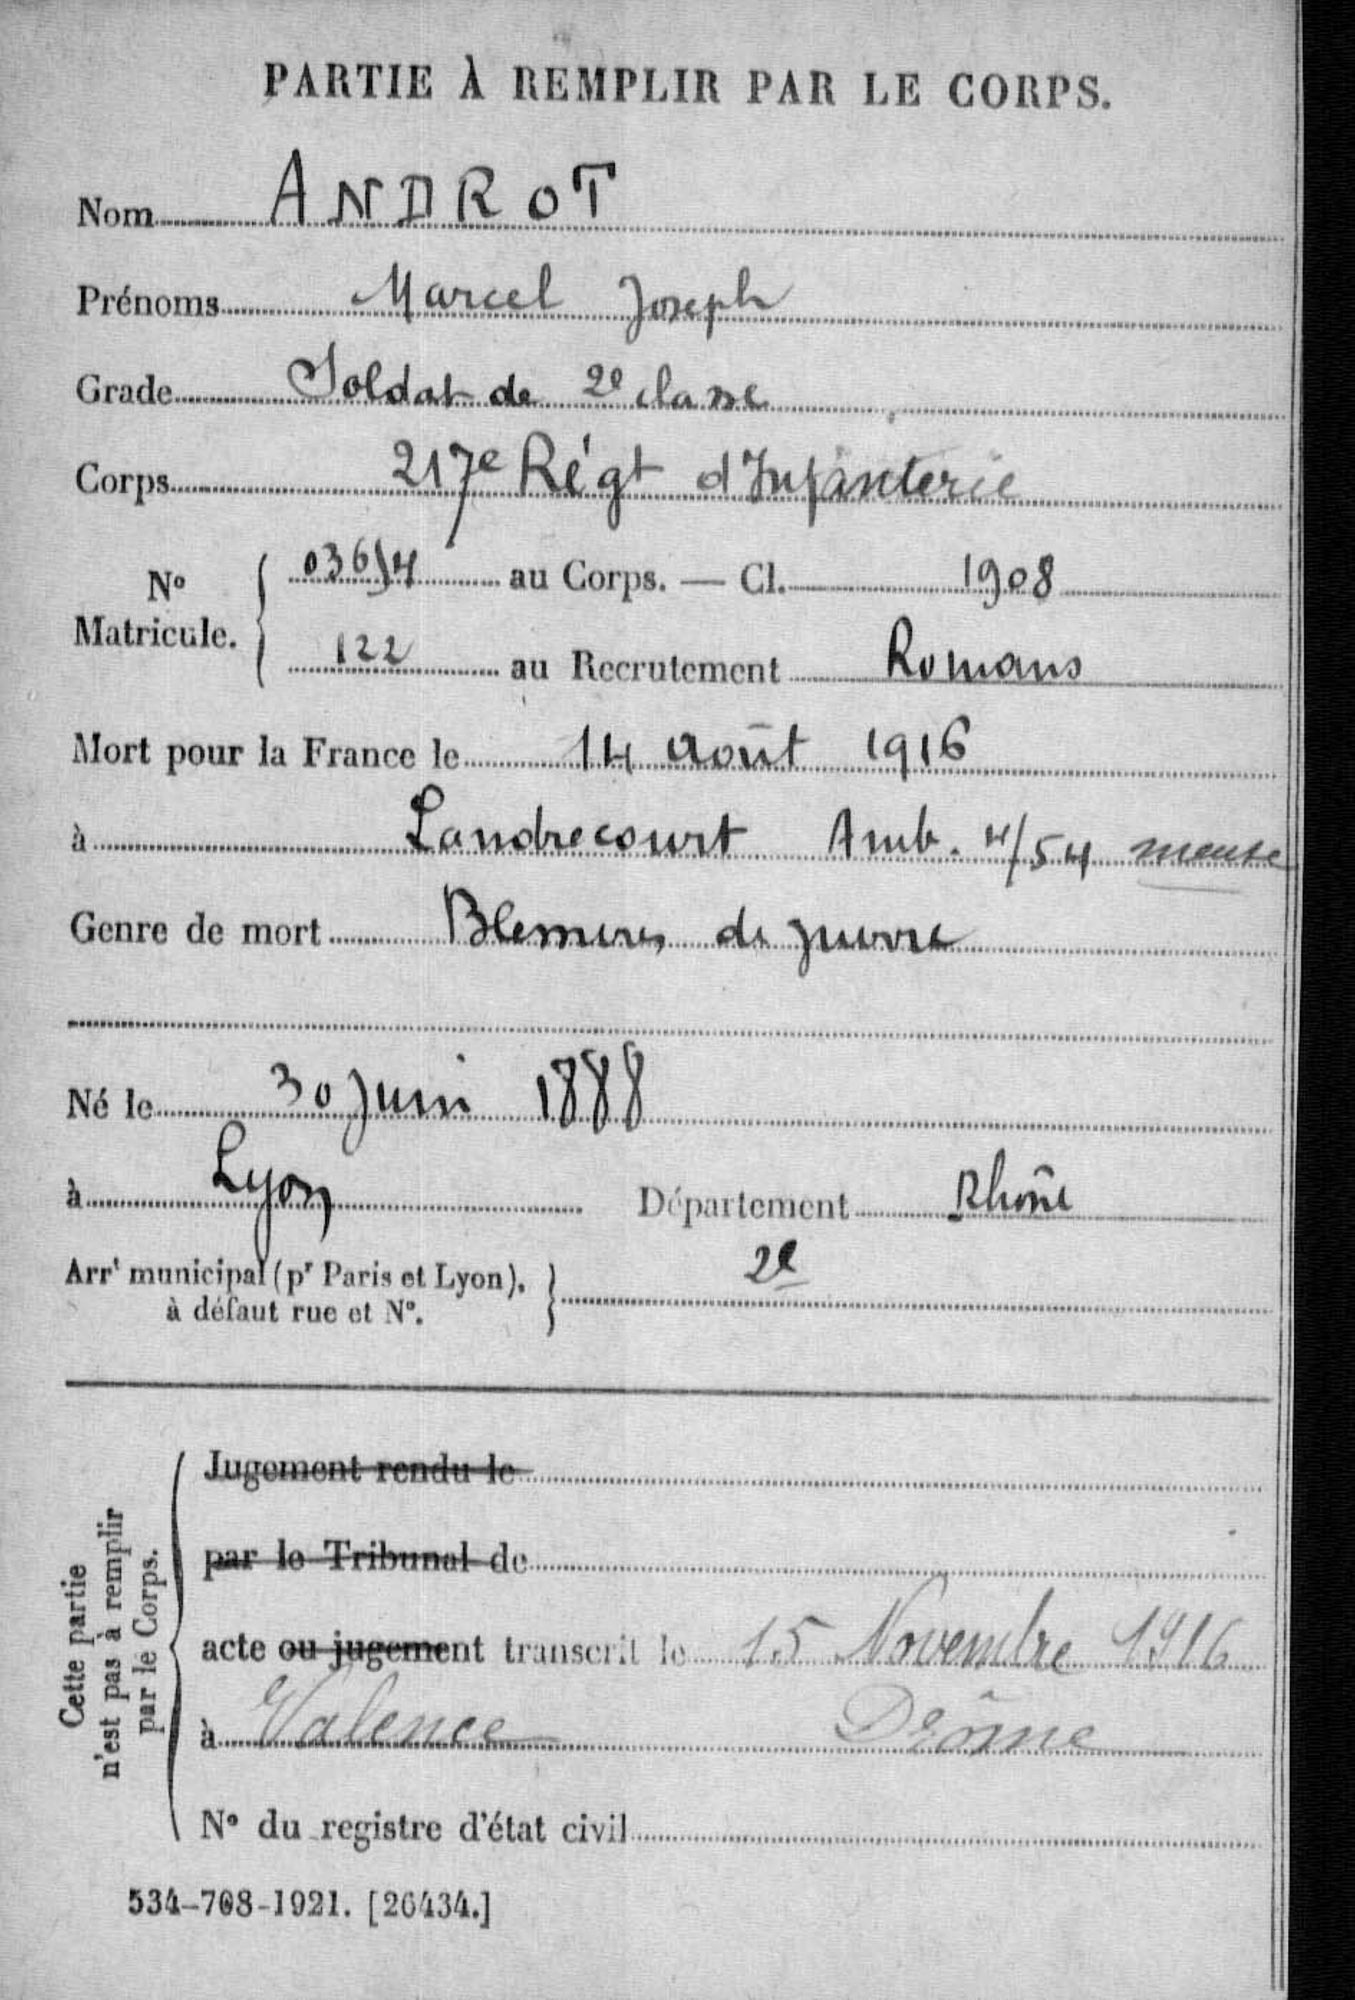 PARTIE À REMPLIR PAR LE CORPS.
Nom ANDROT
Prénoms Marcel Joseph
Grade Soldat de 2e classe
Corps 217e Régt d'Infanterie
No Matricule. { au Corps. — Cl. 1908
122 au Recrutement Romans
Mort pour la France le 14 Août 1916
à Landrecourt Amb. 4/54 meuse
Genre de mort Blessures de guerre
Né le 30 Juin 1888
à Lyon Département Rhône
Arrt municipal (pr Paris et Lyon), } 2e
à défaut rue et No.
Cette partie
n'est pas à remplir
par le Corps.
Jugement rendu le
par le Tribunal de
acte ou jugement transcrit le 15 Novembre 1916
à Valence Drôme
No du registre d'état civil
534-708-1921. [26434.]